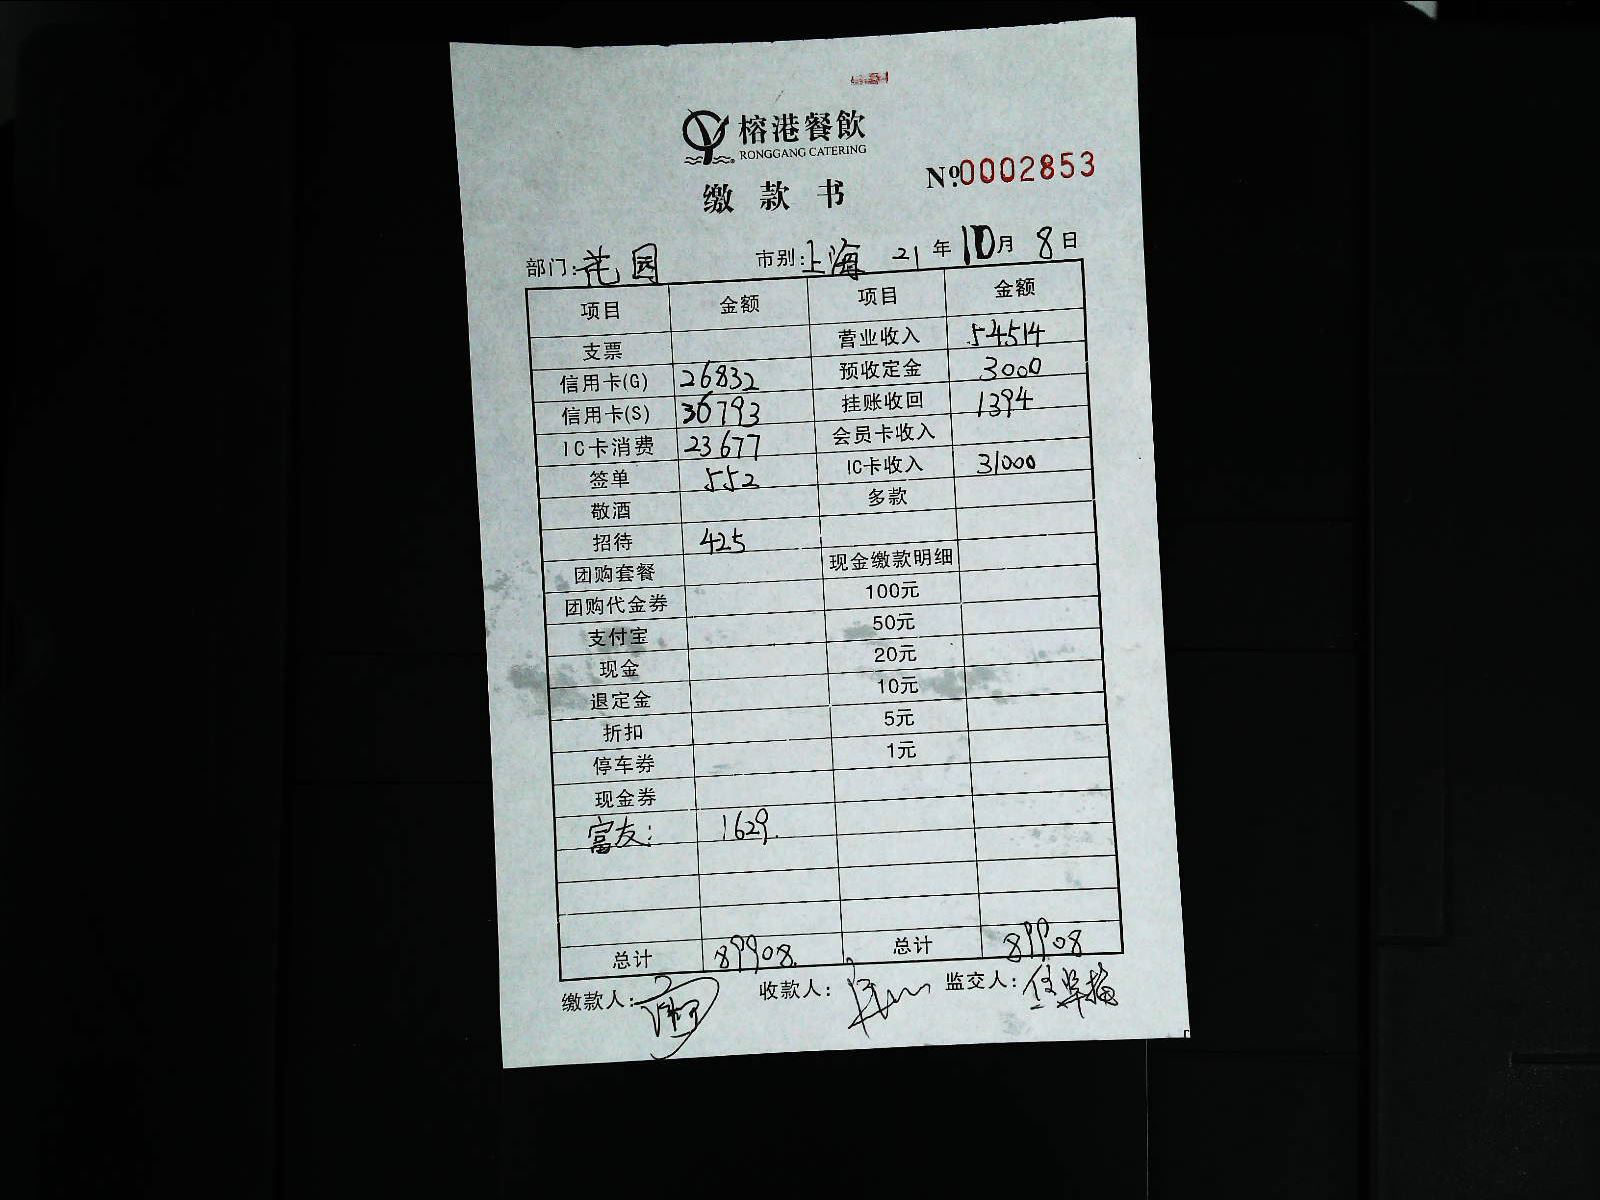 榕港餐飲
RONGGANG CATERING
缴款书
№0002853
部门:花园 市别:上海 21年10月8日
项目 金额 项目 金额
支票 营业收入 54514
信用卡(G) 26832 预收定金 3000
信用卡(S) 36793 挂账收回 1394
IC卡消费 23677 会员卡收入
签单 552 IC卡收入 31000
敬酒 多款
招待 425
团购套餐 现金缴款明细
团购代金券 100元
支付宝 50元
现金 20元
退定金 10元
折扣 5元
停车券 1元
现金券
富友: 1629.
总计 89908. 总计 89908
缴款人: 收款人: 监交人: